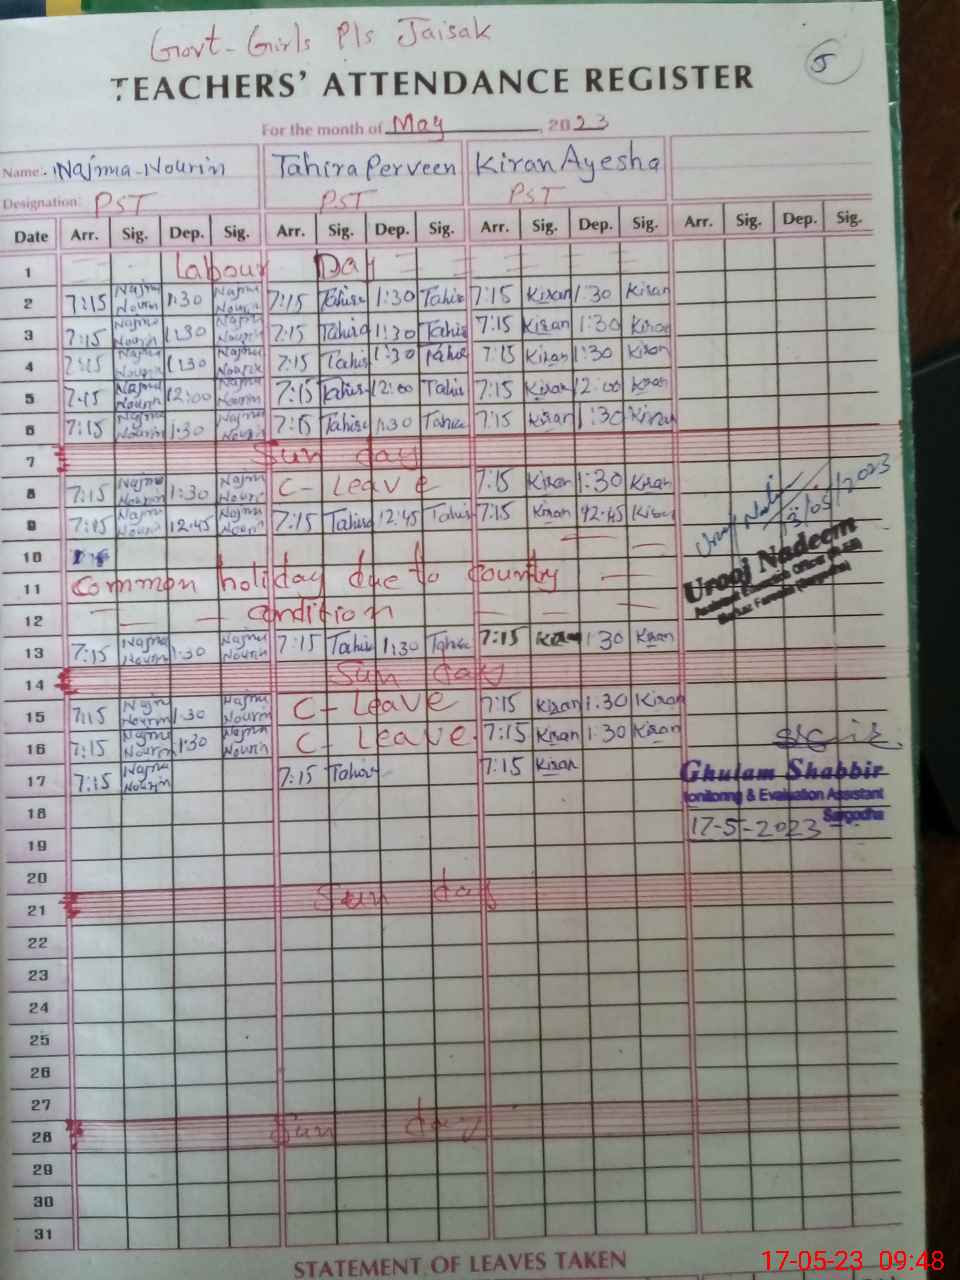 Govt- Girls P/s Jaisak
5
TEACHERS' ATTENDANCE REGISTER
For the month of May, 2023
Name:- Najma-Nourin Tahira Perveen Kiran Ayesha
Designation: PST PST PST
Date Arr. Sig. Dep. Sig. Arr. Sig. Dep. Sig. Arr. Sig. Dep. Sig. Arr. Sig. Dep. Sig.
1 Labour Day
2 7:15 Najma Nourin 1:30 Najma Nourin 7:15 Tahira 1:30 Tahira 7:15 Kiran 1:30 Kiran
3 7:15 Najma Nourin 1:30 Najma Nourin 7:15 Tahira 1:30 Tahira 7:15 Kiran 1:30 Kiran
4 7:15 Najma Nourin 1:30 Najma Nourin 7:15 Tahira 1:30 Tahira 7:15 Kiran 1:30 Kiran
5 7:15 Najma Nourin 12:00 Najma Nourin 7:15 Tahira 12:00 Tahira 7:15 Kiran 12:00 Kiran
6 7:15 Najma Nourin 1:30 Najma Nourin 7:15 Tahira 1:30 Tahira 7:15 Kiran 1:30 Kiran
7 Sun day
8 7:15 Najma Nourin 1:30 Najma Nourin C- Leave 7:15 Kiran 1:30 Kiran
9 7:15 Najma Nourin 12:45 Najma Nourin 7:15 Tahira 12:45 Tahira 7:15 Kiran 12:45 Kiran
10
11 Common holiday due to country
12 condition
Urooj Nadeem
13 7:15 Najma Nourin 1:30 Najma Nourin 7:15 Tahira 1:30 Tahira 7:15 Kiran 1:30 Kiran
14 Sun day
15 7:15 Najma Nourin 1:30 Najma Nourin C- Leave 7:15 Kiran 1:30 Kiran
16 7:15 Najma Nourin 1:30 Najma Nourin C- Leave 7:15 Kiran 1:30 Kiran
17 7:15 Najma Nourin 7:15 Tahira 7:15 Kiran
Ghulam Shabbir
Monitoring & Evaluation Assistant
Sargodha
17-5-2023
18
19
20
21 Sun day
22
23
24
25
26
27
28 Sun day
29
30
31
STATEMENT OF LEAVES TAKEN
17-05-23 09:48